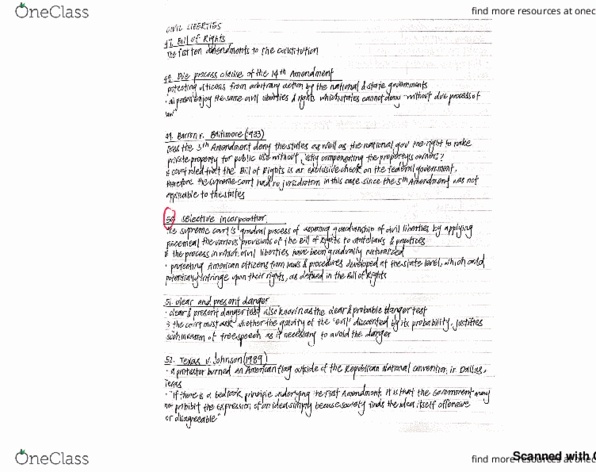 OneClass
find more resources at onec
CIVIL LIBERTIES
47. Bill of Rights
the first ten amendments to the constitution
48. Due process clause of the 14th Amendment
protecting citizens from arbitrary action by the national & state governments
all persons enjoy the same civil liberties & rights which states cannot deny without due process of
law
49. Barron v. Baltimore (1833)
Does the 5th Amendment deny the states as well as the national gov the right to take
private property for public use without justly compensating the property's owner?
court ruled that the Bill of Rights is an exclusive check on the federal government,
therefore the supreme court had no jurisdiction in this case since the 5th Amendment was not
applicable to the states
50. selective incorporation
the supreme court's gradual process of assuring of civil liberties by applying
piecemeal the various provisions of the Bill of Rights to state laws & practices
the process in which civil liberties have been gradually nationalized
protecting American citizens from laws & procedures developed at the state level, which could
potentially infringe upon their rights, as defined in the Bill of Rights
51. clear and present danger
clear & present danger test also known as the clear & probable danger test
the court must ask whether the gravity of the "evil" discounted by its probability, justifies
such invasion of free speech as is necessary to avoid the danger
52. Texas v. Johnson (1989)
a protestor burned an American flag outside of the Republican National convention in Dallas,
Texas
"If there is a bedrock principle underlying the First Amendment, it is that the Government may
not prohibit the expression of an idea simply because society finds the idea itself offensive
or disagreeable"
OneClass
find more resources at onec
Scanned with C